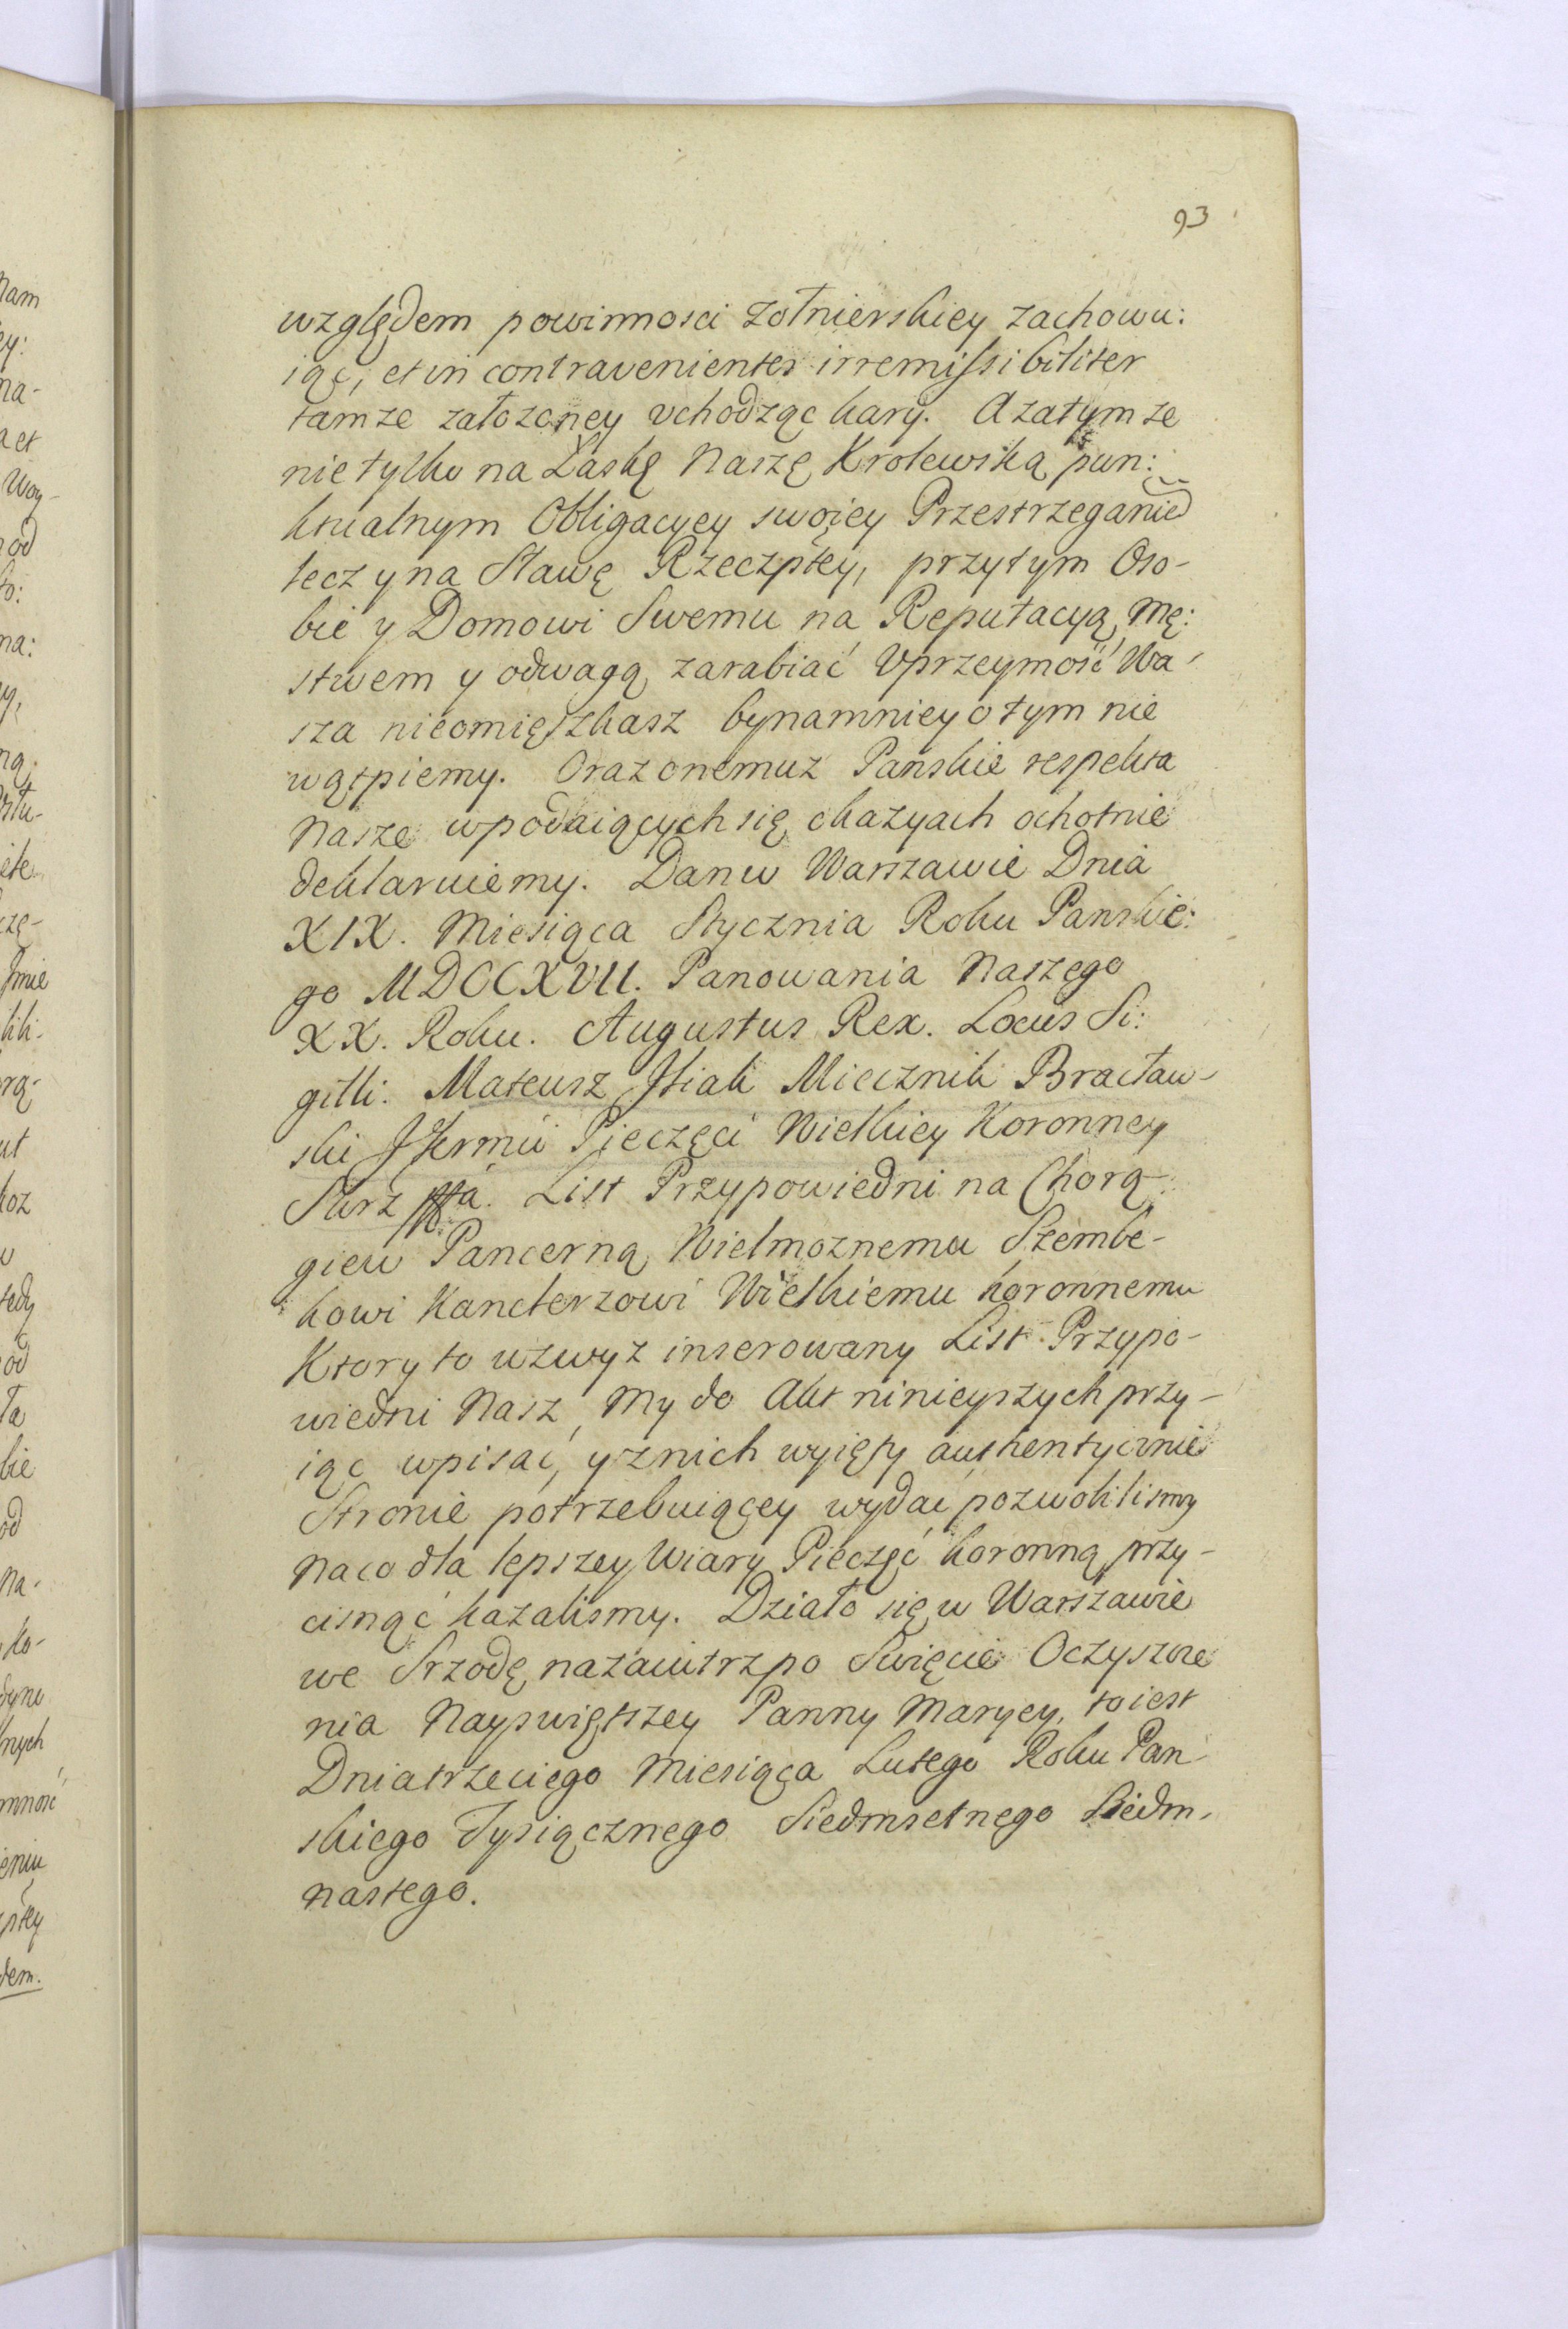 93
względem powinnosci żołnierskiey zachowu:
iąc, et in contravenientes irremissibiliter
tamze załozoney vchodząc kary. A zatym ze
nie tylko na Łaskę Naszę Krolewską pun:
ktualnym Obligacyey swoiey Przestrzeganie
lecz y na Sławę Rzeczpłey, przytym Oso-
bie y Domowi Swemu na Reputacyą, Mę:
stwem y odwagą zarabiać Vprzeymość Wa-
sza nieomięszkasz bynamniey o tym nie
wątpiemy. Oraz onemuz Panskie respekta
Nasze wpodaiących się okazyach ochotnie
deklaruiemy. Dan w Warszawie Dnia
XIX. Miesiąca Stycznia Roku Panskie:
go MDCCXVII. Panowania Naszego
XX. Roku. Augustus Rex. Locus Si:
gilli. Mateusz Miecznik Bracław-
ski Pieczęci Wielkiey Koronney
List Przypowiedni na Chorą-
giew Pancerną Wielmoznemu Szembe-
kowi Kanclerzowi Wielkiemu koronnemu
Ktory to wzwyz inserowany List Przypo-
wiedni Nasz, My do Akt ninieyszych przy-
iąc wpisać, y znich wyięty authentycznie
Stronie potrzebuiącey wydac pozwolilismy
Naco dla lepszey Wiary Pieczęć koronną przy-
cisnąć kazalismy. Działo się w Warszawie
we Srzodę nazaiutrz po Swięcie Oczyszcze
nia Nayswiętszey Panny Maryey, to iest
Dnia trzeciego Miesiąca Lutego Roku Pan
skiego Tysiącznego Siedmsetnego Siedm-
nastego.